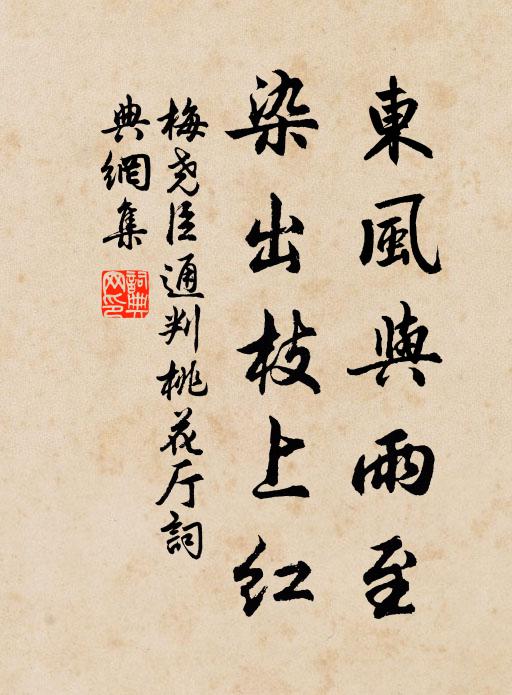 東風與雨至
染出枝上红
梅尧臣通判桃花厅詞
典網集
詞典网印